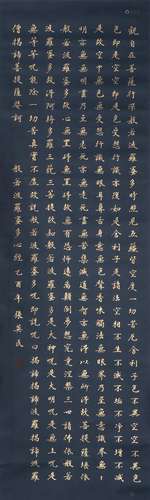 觀自在菩薩行深般若波羅蜜多時照見五蘊皆空度一切苦厄舍利子色不異空空不異色
色即是空空即是色受想行識亦復如是舍利子是諸法空相不生不滅不垢不淨不增不減
是故空中無色無受想行識無眼耳鼻舌身意無色聲香味觸法無眼界乃至無意識界無無
明亦無無明盡乃至無老死亦無老死盡無苦集滅道無智亦無得以無所得故菩提薩埵依
般若波羅蜜多故心無罣礙無罣礙故無有恐怖遠離顛倒夢想究竟涅槃三世諸佛依般若
波羅蜜多故得阿耨多羅三藐三菩提故知般若波羅蜜多是大神咒是大明咒是無上咒是
無等等咒能除一切苦真實不虛故說般若波羅蜜多咒即說咒曰揭諦揭諦波羅揭諦波羅
僧揭諦菩提薩婆訶 般若波羅蜜多心經 乙酉年 張英民